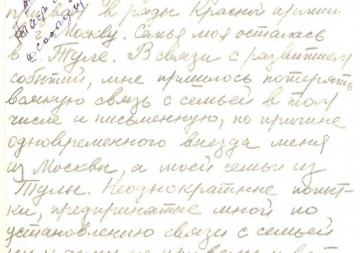 призван в ряды Красной армии
г. Москву. Семья моя осталась
в г. Туле. В связи с развитием
событий, мне пришлось потерять
всякую связь с семьей в том
числе и письменную, по причине
одновременного выезда меня
из Москвы, а моей семьи из
Тулы. Неоднократные попыт-
ки, предпринятые мной по
установлению связи с семьей
ни к чему не привели